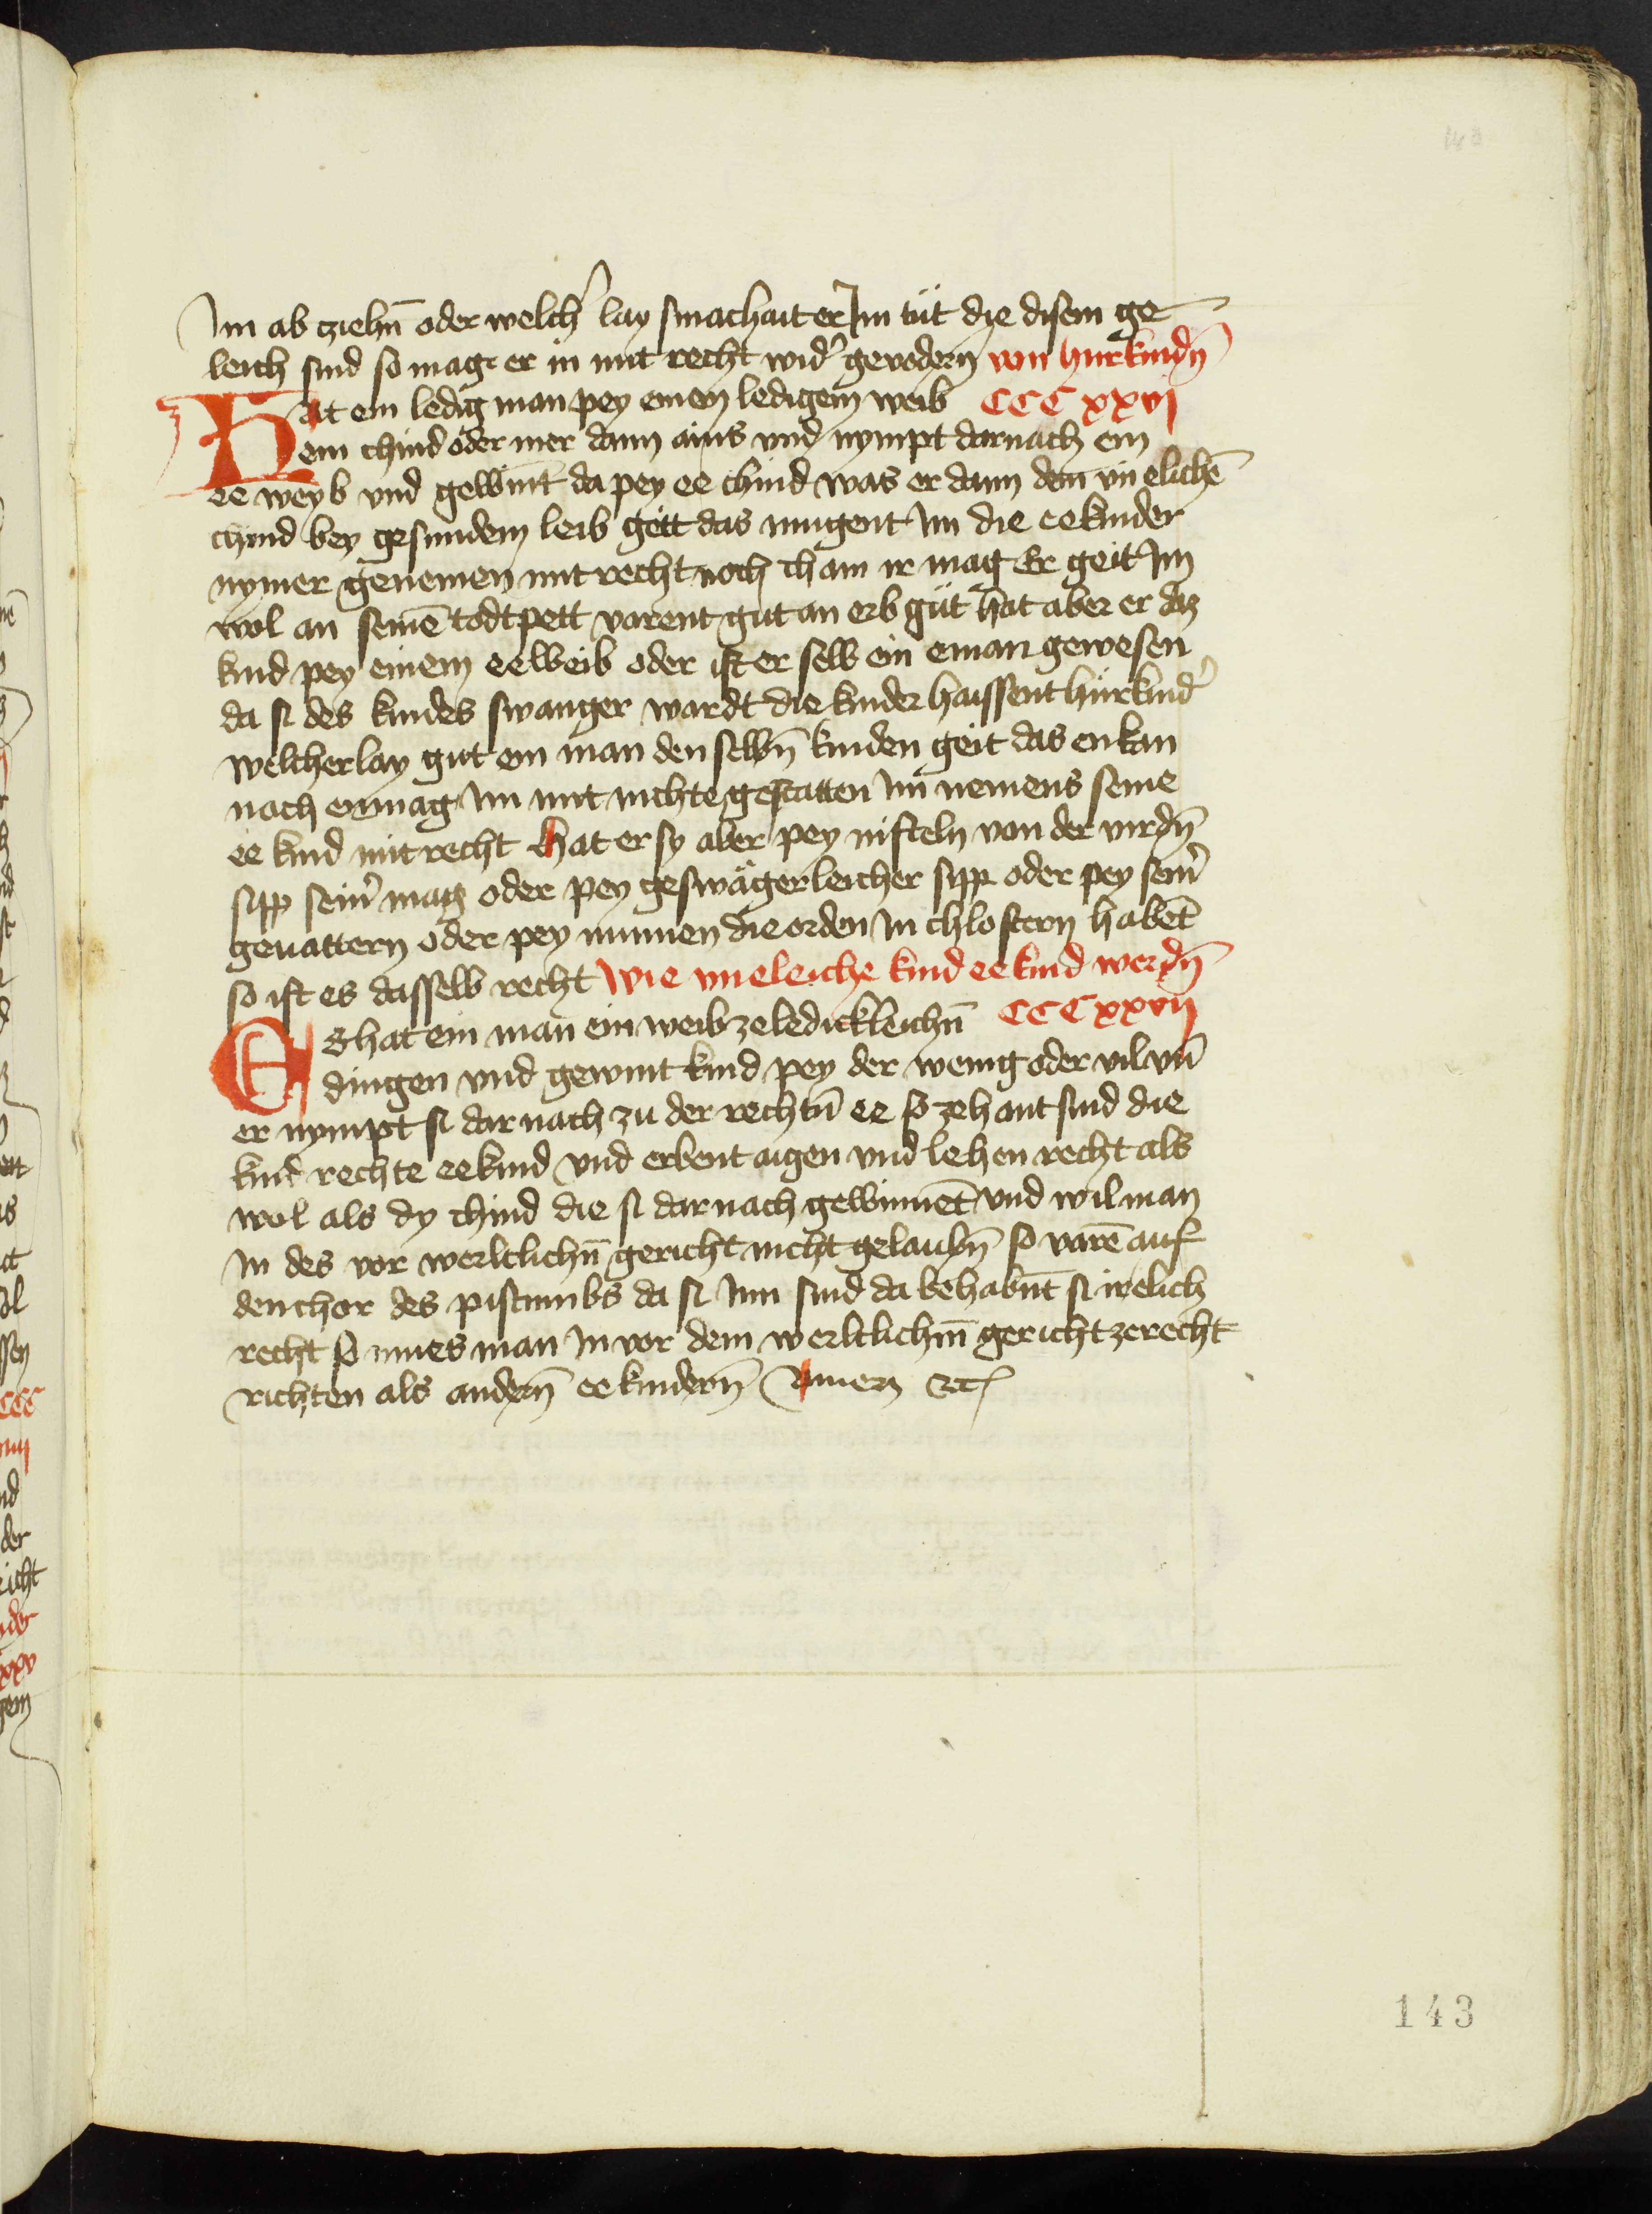 143
Im ab ziehn̄ oder welch̓ lay smachait er Im tüt die disem ge
leich sind so mag er in mit recht wid̓ gevodern̄ von hurkindn̄
Hat ein ledig man pey einem ledigem weib CCCxxvj
ein chind oder mer dann ains vnd nympt darnach ein
ee weyb vnd gewint da pey ee chind was er dann dem vn elichē
chind bey gesundem leib geit das mugent Im die eekinder
nymer genemen mit recht noch cham ir mag Er geit Im
wol an seinē todtpett varent gut an erb güt hat aber er daz
kind pey einem eeweib oder ist er selb ein eman gewesen
da si des kindes swanger wardt die kinder haissent hürkind̓
welcherlay gut ein man den selbn̄ kinden geit das enkan
noch enmag Im mit nichte gestatten Im nemens seine
ee kind mit recht hat er sy aber pey nifteln von der virdn̄
sipp sein̓ mag oder pey geswägerleicher sipp oder pey sein̓
geuattern oder pey nunnen die orden In chlostern habēt
so ist es dasselb recht wie vneleiche kind eekind werdn̄
Es hat ein man ein weib ze ledickleichn̄ CCCxxvij
dingen vnd gewint kind pey der wenig oder vil vn̄
er nympt si darnach zu der rechtn̄ ee so zehant sind die
kind rechte eekind vnd erbent aigen vnd lehen recht als
wol als dy chind die si darnach gewinnēt vnd wil man
In des vor werltlichn̄ gericht nicht gelaubn̄ so varē auf
den chor des pistumbs da si Inn sind da behabnt si ir elich
recht so mues man In vor dem werltlichm̄ gericht ze recht
richten als andern̄ eekindern̄ Amen ꝛc
143